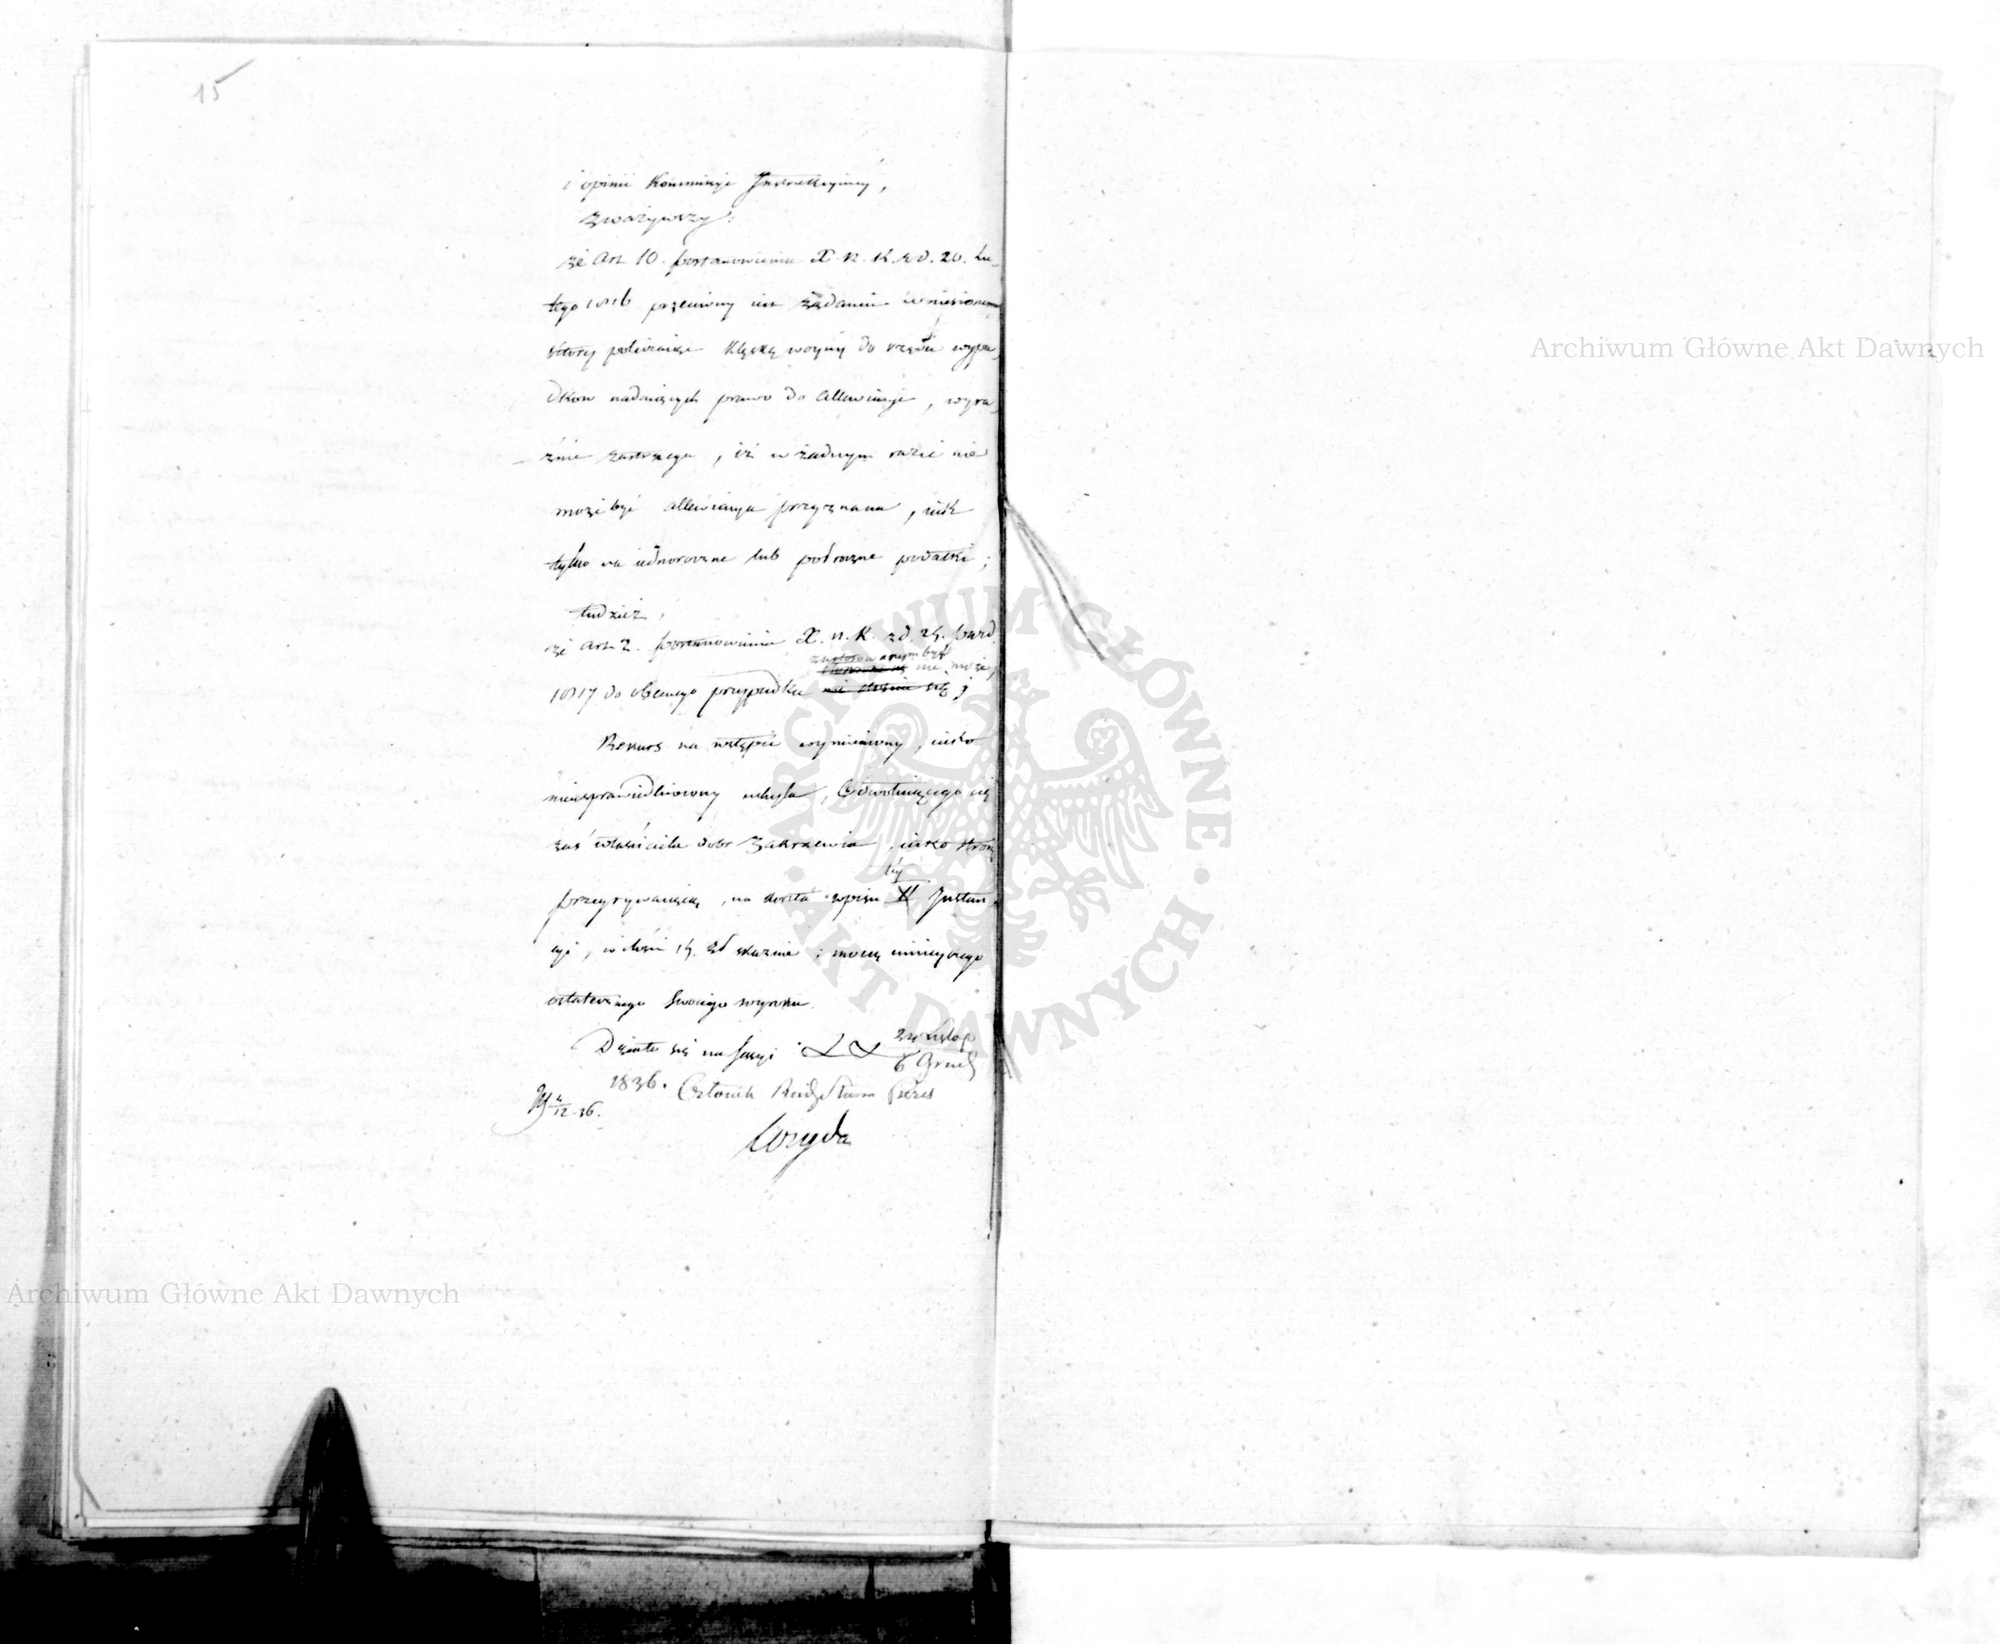 15
i opinii Kommissyi Instrukcyiney,
zważywszy:
że Art 10. postanowienia X. N. K. z d. 20. Lu-
tego 1816 przeciwny iest żądaniu wniesionemu
który policzaiąc klęskę woyny do rzędu wypa-
dków nadaiących prawo do allewiacyi, wyra-
źnie zastrzega, iż w żadnym razie nie
może być allewiacya przyznana, iak
tylko na iednoroczne lub półroczne podatki;
tudzież,
że Art 2. postanowienia X. N. K. z d. 24. paźd.
zastosowanym być nie może,
1817 do obecnego przypadku nie stosuie się;
Rekurs na wstępie wymieniony, iako
niesprawiedliwiony uchyla, Odwołuiącego się
zaś właściciela dobr Zakrzewia, iako stronę
tey
przegrywaiącą, na koszta wpisu Instan-
cyi, w ilości 14 zł skazuie; mocą ninieyszego
ostatecznego swoiego wyroku.
Działo się na sessyi 24 Listop
6 Grud
1836. Członek Rady Stanu Prezes
12-36.
Wozyda
Archiwum Główne Akt Dawnych
Archiwum Główne Akt Dawnych
ARCHIWUM GŁÓWNE AKT DAWNYCH